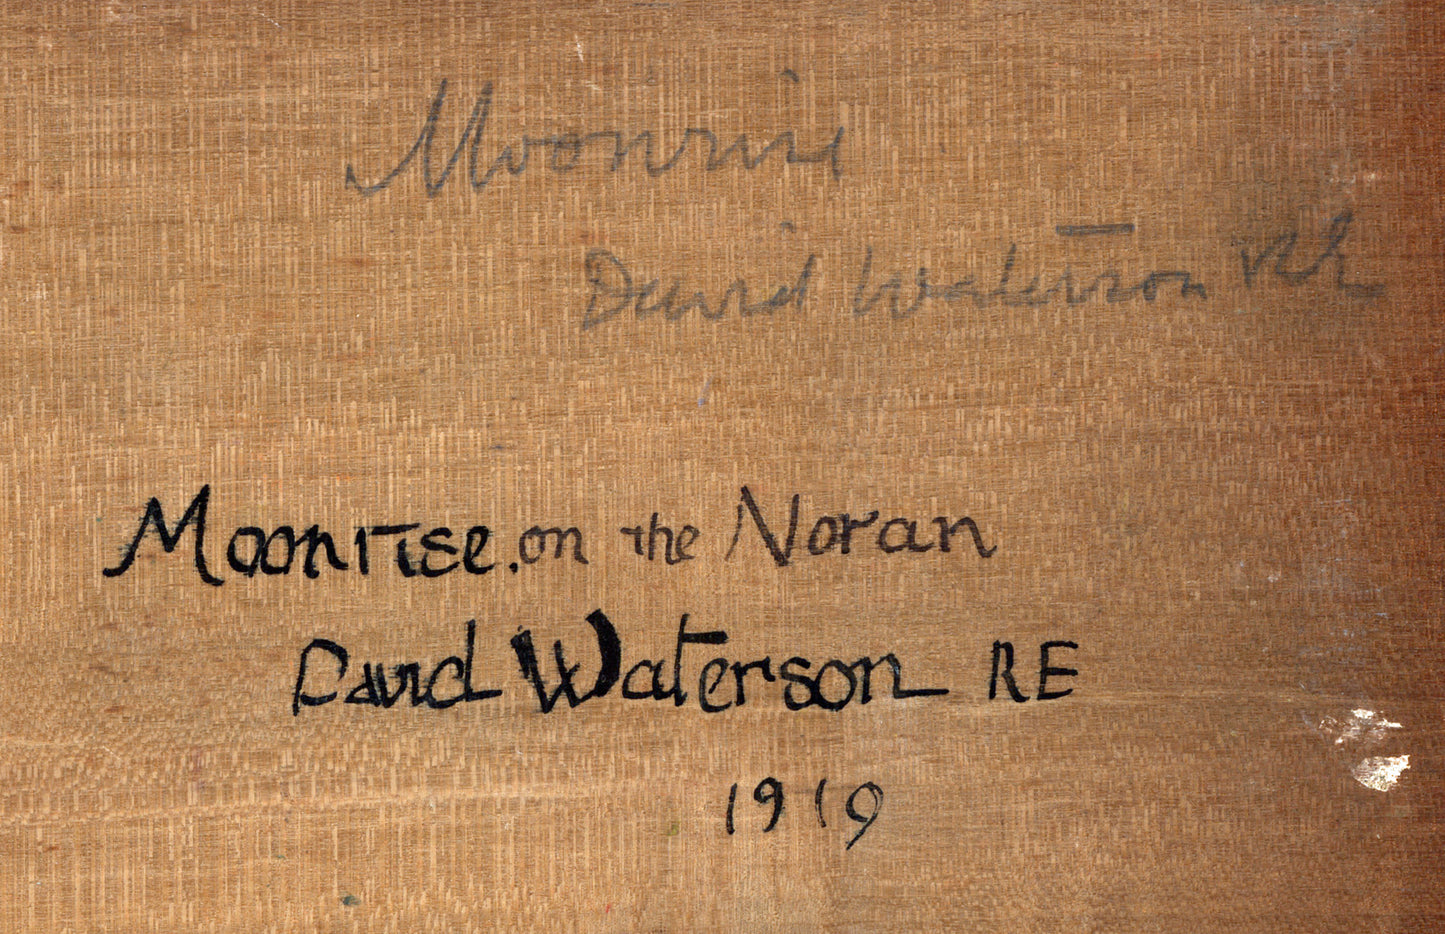 Moonrise
David Waterson RE
Moonrise. on the Noran
David Waterson RE
1919